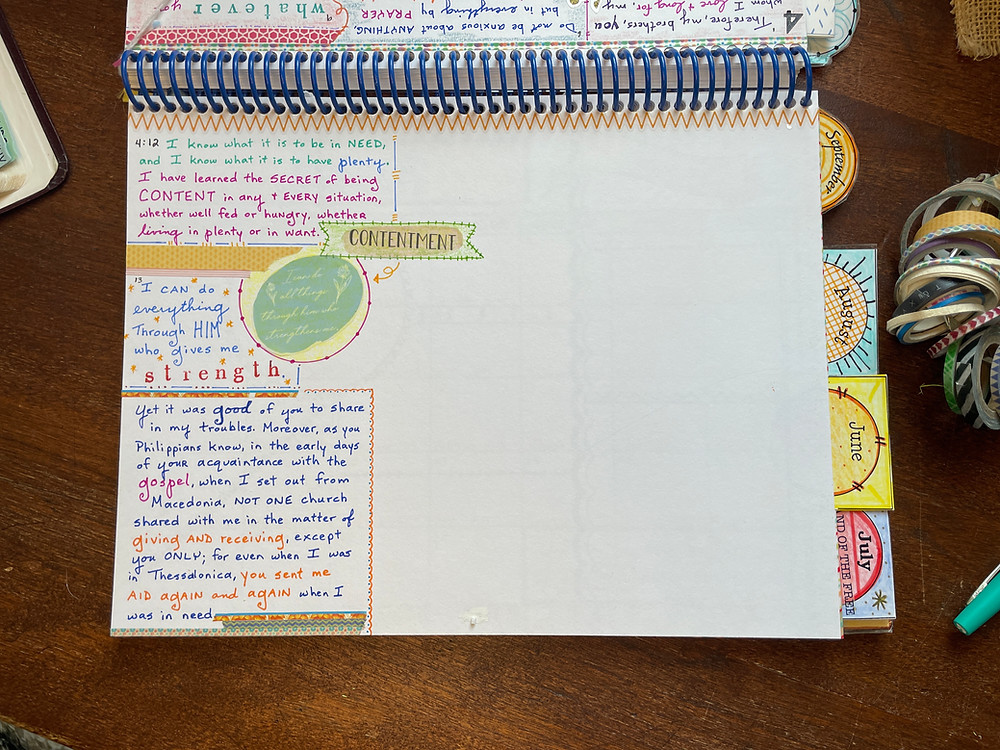 whatever
9
yo
but in everything by PRAYER
"Do not be anxious about ANYTHING,
4
Therefore, my brothers, you
whom I love + long for, my
4:12 I know what it is to be in NEED,
and I know what it is to have plenty.
I have learned the SECRET of being
CONTENT in any + EVERY situation,
whether well fed or hungry, whether
living in plenty or in want.
CONTENTMENT
I can do
all things
through him who
strengthens me
13
I CAN do
everything
Through HIM
who gives me
strength.
Yet it was good of you to share
in my troubles. Moreover, as you
Philippians know, in the early days
of your acquaintance with the
gospel, when I set out from
Macedonia, NOT ONE church
shared with me in the matter of
giving AND receiving, except
you ONLY; for even when I was
in Thessalonica, you sent me
AID agAIN and agAIN when I
was in need.
September
August
June
July
AND OF THE FREE